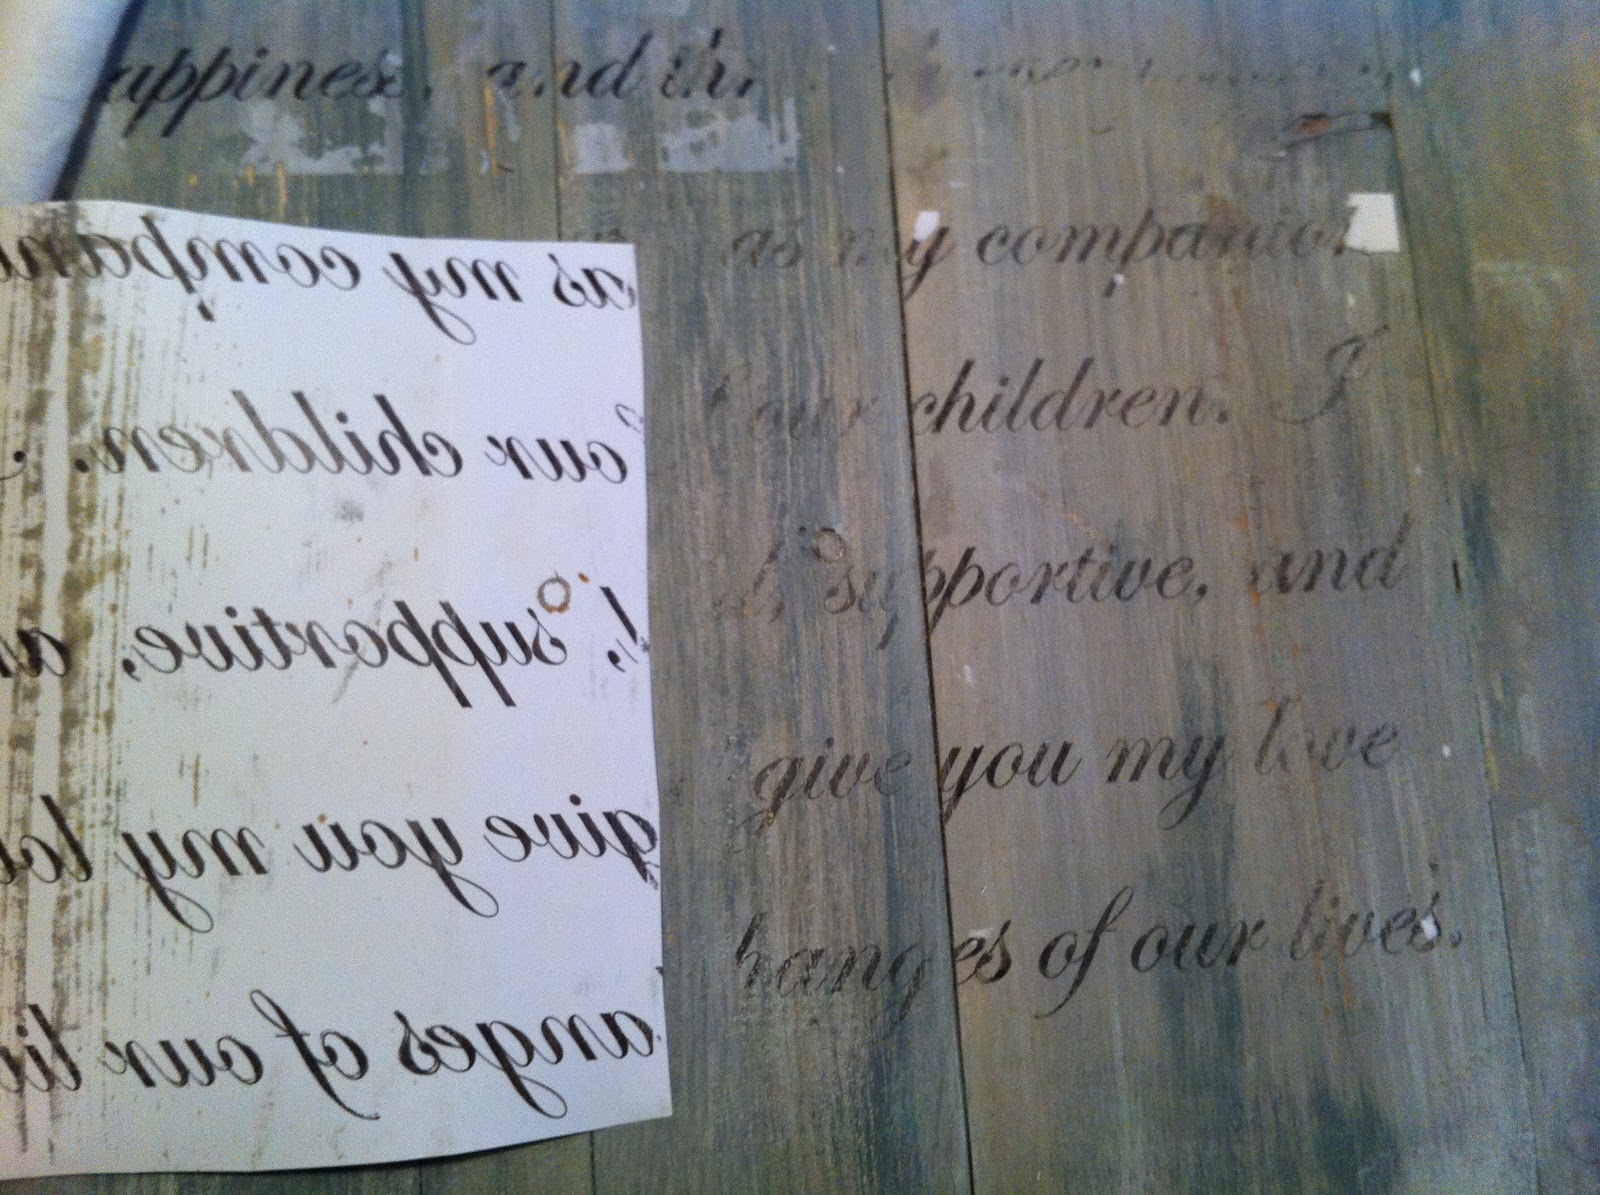 appiness, and thr
as my companion
our children. I
l, supportive, and
give you my love
hanges of our lives.
as my compani
our children.
l, supportive, an
give you my lov
anges of our li